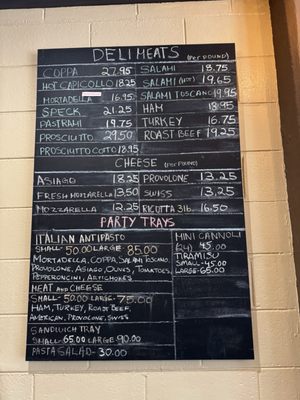 DELI MEATS (PER POUND)
COPPA 27.95 SALAMI 18.75
HOT CAPICOLLO 18.25 SALAMI (HOT) 19.65
MORTADELLA 16.95 SALAMI TOSCANO 19.95
SPECK 21.25 HAM 18.95
PASTRAMI 19.75 TURKEY 16.75
PROSCIUTTO 29.50 ROAST BEEF 19.25
PROSCIUTTO COTTO 18.95
CHEESE (PER POUND)
ASIAGO 18.25 PROVOLONE 13.25
FRESH MOZZARELLA 13.50 SWISS 13.25
MOZZARELLA 12.25 RICOTTA 3LB. 16.50
PARTY TRAYS
ITALIAN ANTIPASTO
SMALL- 50.00 LARGE- 85.00
MORTADELLA, COPPA, SALAMI TOSCANO
PROVOLONE, ASIAGO, OLIVES, TOMATOES,
PEPPERONCINI, ARTICHOKES
MEAT AND CHEESE
SMALL- 50.00 LARGE- 75.00
HAM, TURKEY, ROAST BEEF,
AMERICAN, PROVOLONE, SWISS
SANDWICH TRAY
SMALL- 65.00 LARGE 90.00
PASTA SALAD- 30.00
MINI CANNOLI
(24) 45.00
TIRAMISU
SMALL- 45.00
LARGE- 65.00